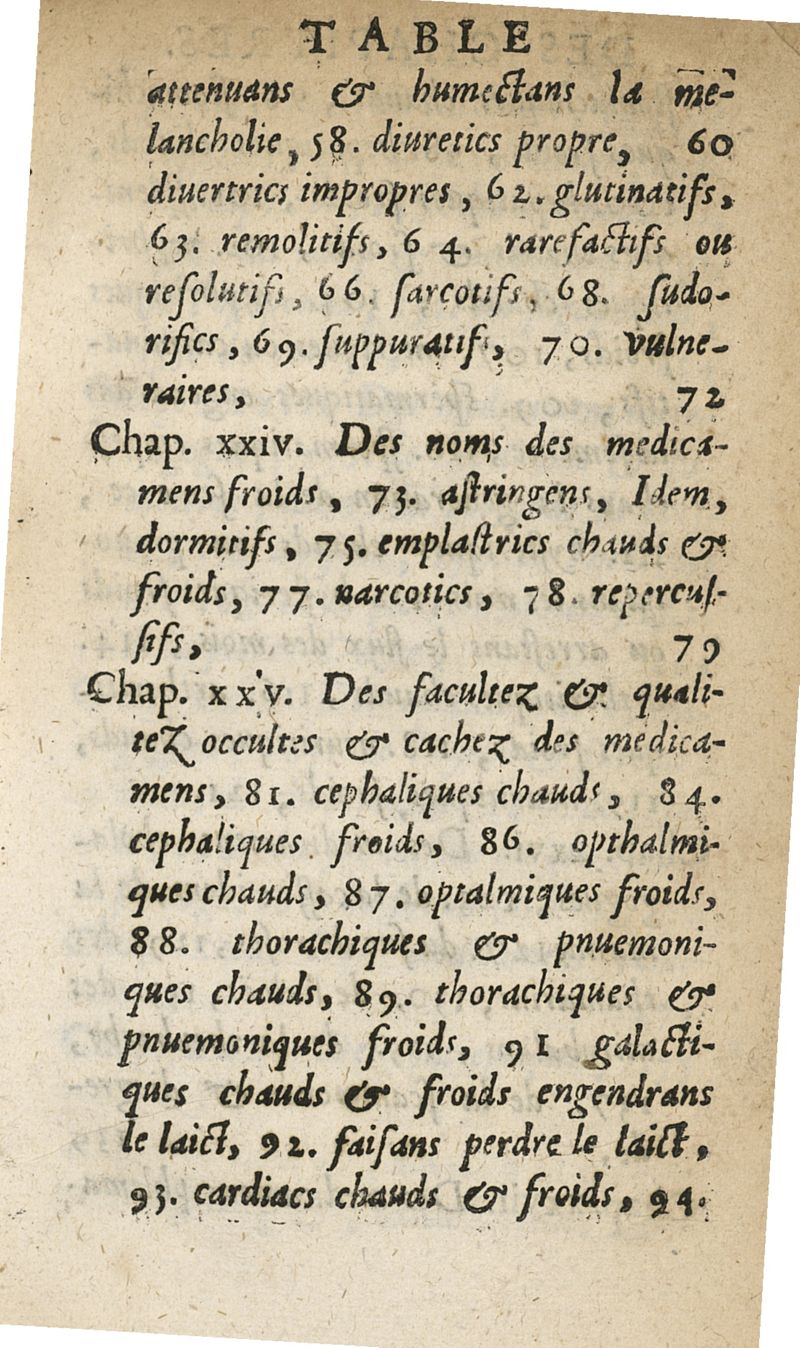 TABLE
attenuans & humectans la me-
lancholie, 58. diuretics propre, 60
diuertrics impropres, 62. glutinatifs,
63. remolitifs, 64. rarefactifs ou
reſolutifs, 66. ſarcotifs, 68. ſudo-
rifics, 69. ſuppuratifs, 70. vulne-
raires, 72
Chap. xxiv. Des noms des medica-
mens froids, 73. aſtringens, Idem,
dormitifs, 75. emplaſtrics chauds &
froids, 77. narcotics, 78. repercuſ-
ſifs, 79
Chap. xxv. Des facultez & quali-
tez occultes & cachez des medica-
mens, 81. cephaliques chauds, 84.
cephaliques froids, 86. opthalmi-
ques chauds, 87. optalmiques froids,
88. thorachiques & pnuemoni-
ques chauds, 89. thorachiques &
pnuemoniques froids, 91 galacti-
ques chauds & froids engendrans
le laict, 92. faiſans perdre le laict,
93. cardiacs chauds & froids, 94.